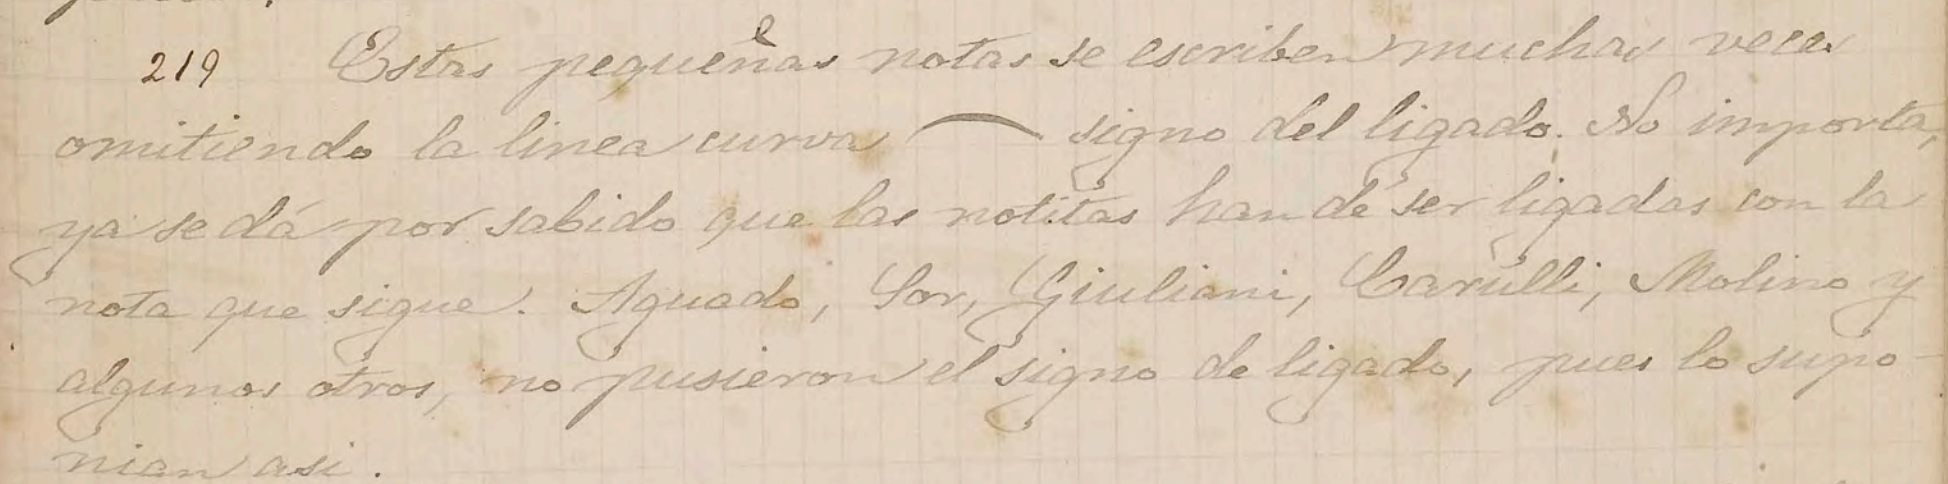 219 Estas pequeñas notas se escriben muchas veces
omitiendo la linea curva ⁀ signo del ligado. No importa,
ya se dá por sabido que las notitas han de ser ligadas con la
nota que sigue. Aguado, Sor, Giuliani, Carulli, Molino y
algunos otros, no pusieron el signo de ligado, pues lo supo-
nian asi.